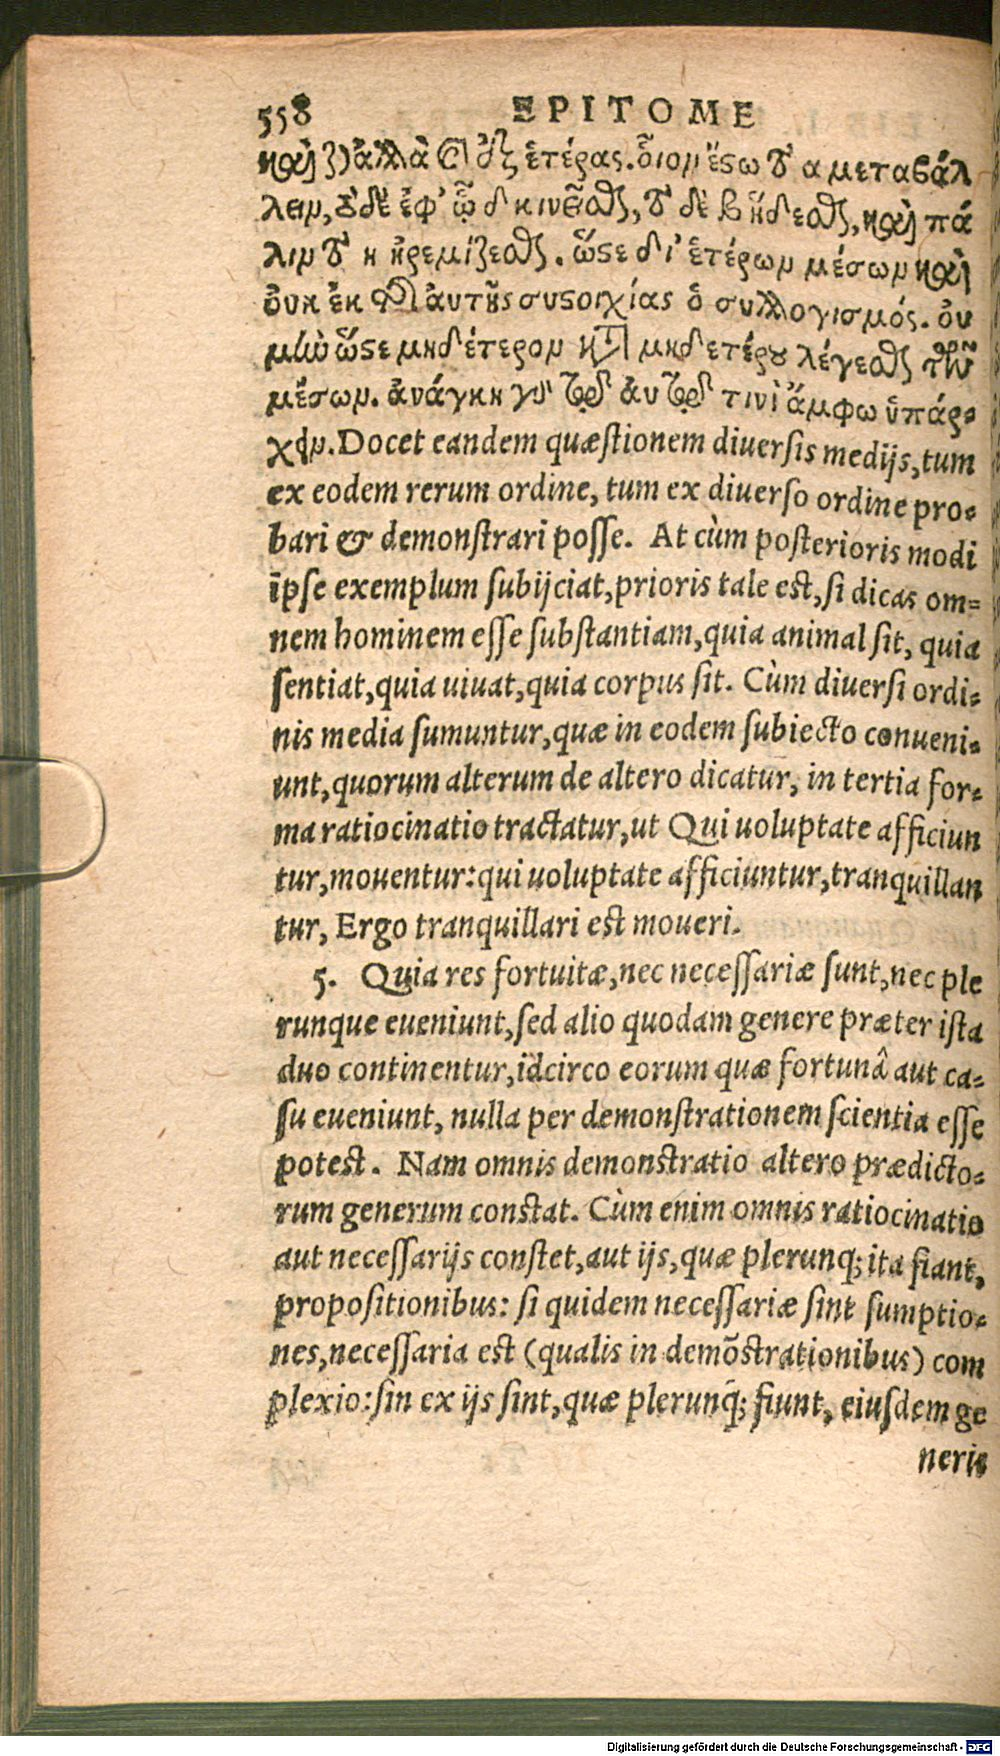 558 EPITOME
καὶ ζ) ἀλλὰ καὶ ἐκ ἑτέρας. οἷον ἔστω τὸ α μεταβάλ
λειν, τὸ δὲ ἐφ' ᾧ δ κινεῖσθαι, τὸ δὲ β ἥδεσθαι, καὶ πά
λιν τὸ η ἠρεμίζεσθαι. ὥστε δι' ἑτέρων μέσων καὶ
οὐκ ἐκ τῆς αὐτῆς συστοιχίας ὁ συλλογισμός. οὐ
μὴν ὥστε μηδέτερον κατὰ μηδετέρου λέγεσθαι τῶν
μέσων. ἀνάγκη γὰρ τῷ αὐτῷ τινὶ ἄμφω ὑπάρ-
χειν. Docet eandem quæstionem diuersis medijs, tum
ex eodem rerum ordine, tum ex diuerso ordine pro-
bari & demonstrari posse. At cùm posterioris modi
ipse exemplum subijciat, prioris tale est, si dicas om=
nem hominem esse substantiam, quia animal sit, quia
sentiat, quia uiuat, quia corpus sit. Cùm diuersi ordi-
nis media sumuntur, quæ in eodem subiecto conueni-
unt, quorum alterum de altero dicatur, in tertia for-
ma ratiocinatio tractatur, ut Qui uoluptate afficiun
tur, mouentur: qui uoluptate afficiuntur, tranquillan
tur, Ergo tranquillari est moueri.
5. Quia res fortuitæ, nec necessariæ sunt, nec ple
runque eueniunt, sed alio quodam genere præter ista
duo continentur, idcirco eorum quæ fortunâ aut ca-
su eueniunt, nulla per demonstrationem scientia esse
potest. Nam omnis demonstratio altero prædicto-
rum generum constat. Cùm enim omnis ratiocinatio
aut necessarijs constet, aut ijs, quæ plerunq; ita fiant,
propositionibus: si quidem necessariæ sint sumptio-
nes, necessaria est (qualis in demõstrationibus) com
plexio: sin ex ijs sint, quæ plerunq; fiunt, eiusdem ge
neris
Digitalisierung gefördert durch die Deutsche Forschungsgemeinschaft - DFG